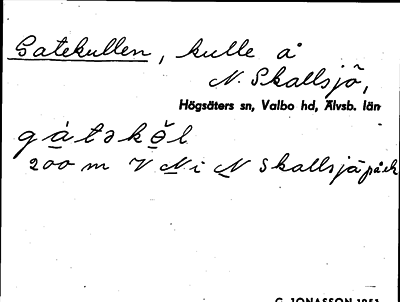 Gatekullen, kulle å
N. Skallsjö,
Högsäters sn, Valbo hd, Älvsb. län
gàtəköl
200 m V N i N Skallsjö på ek
G. JONASSON 1951